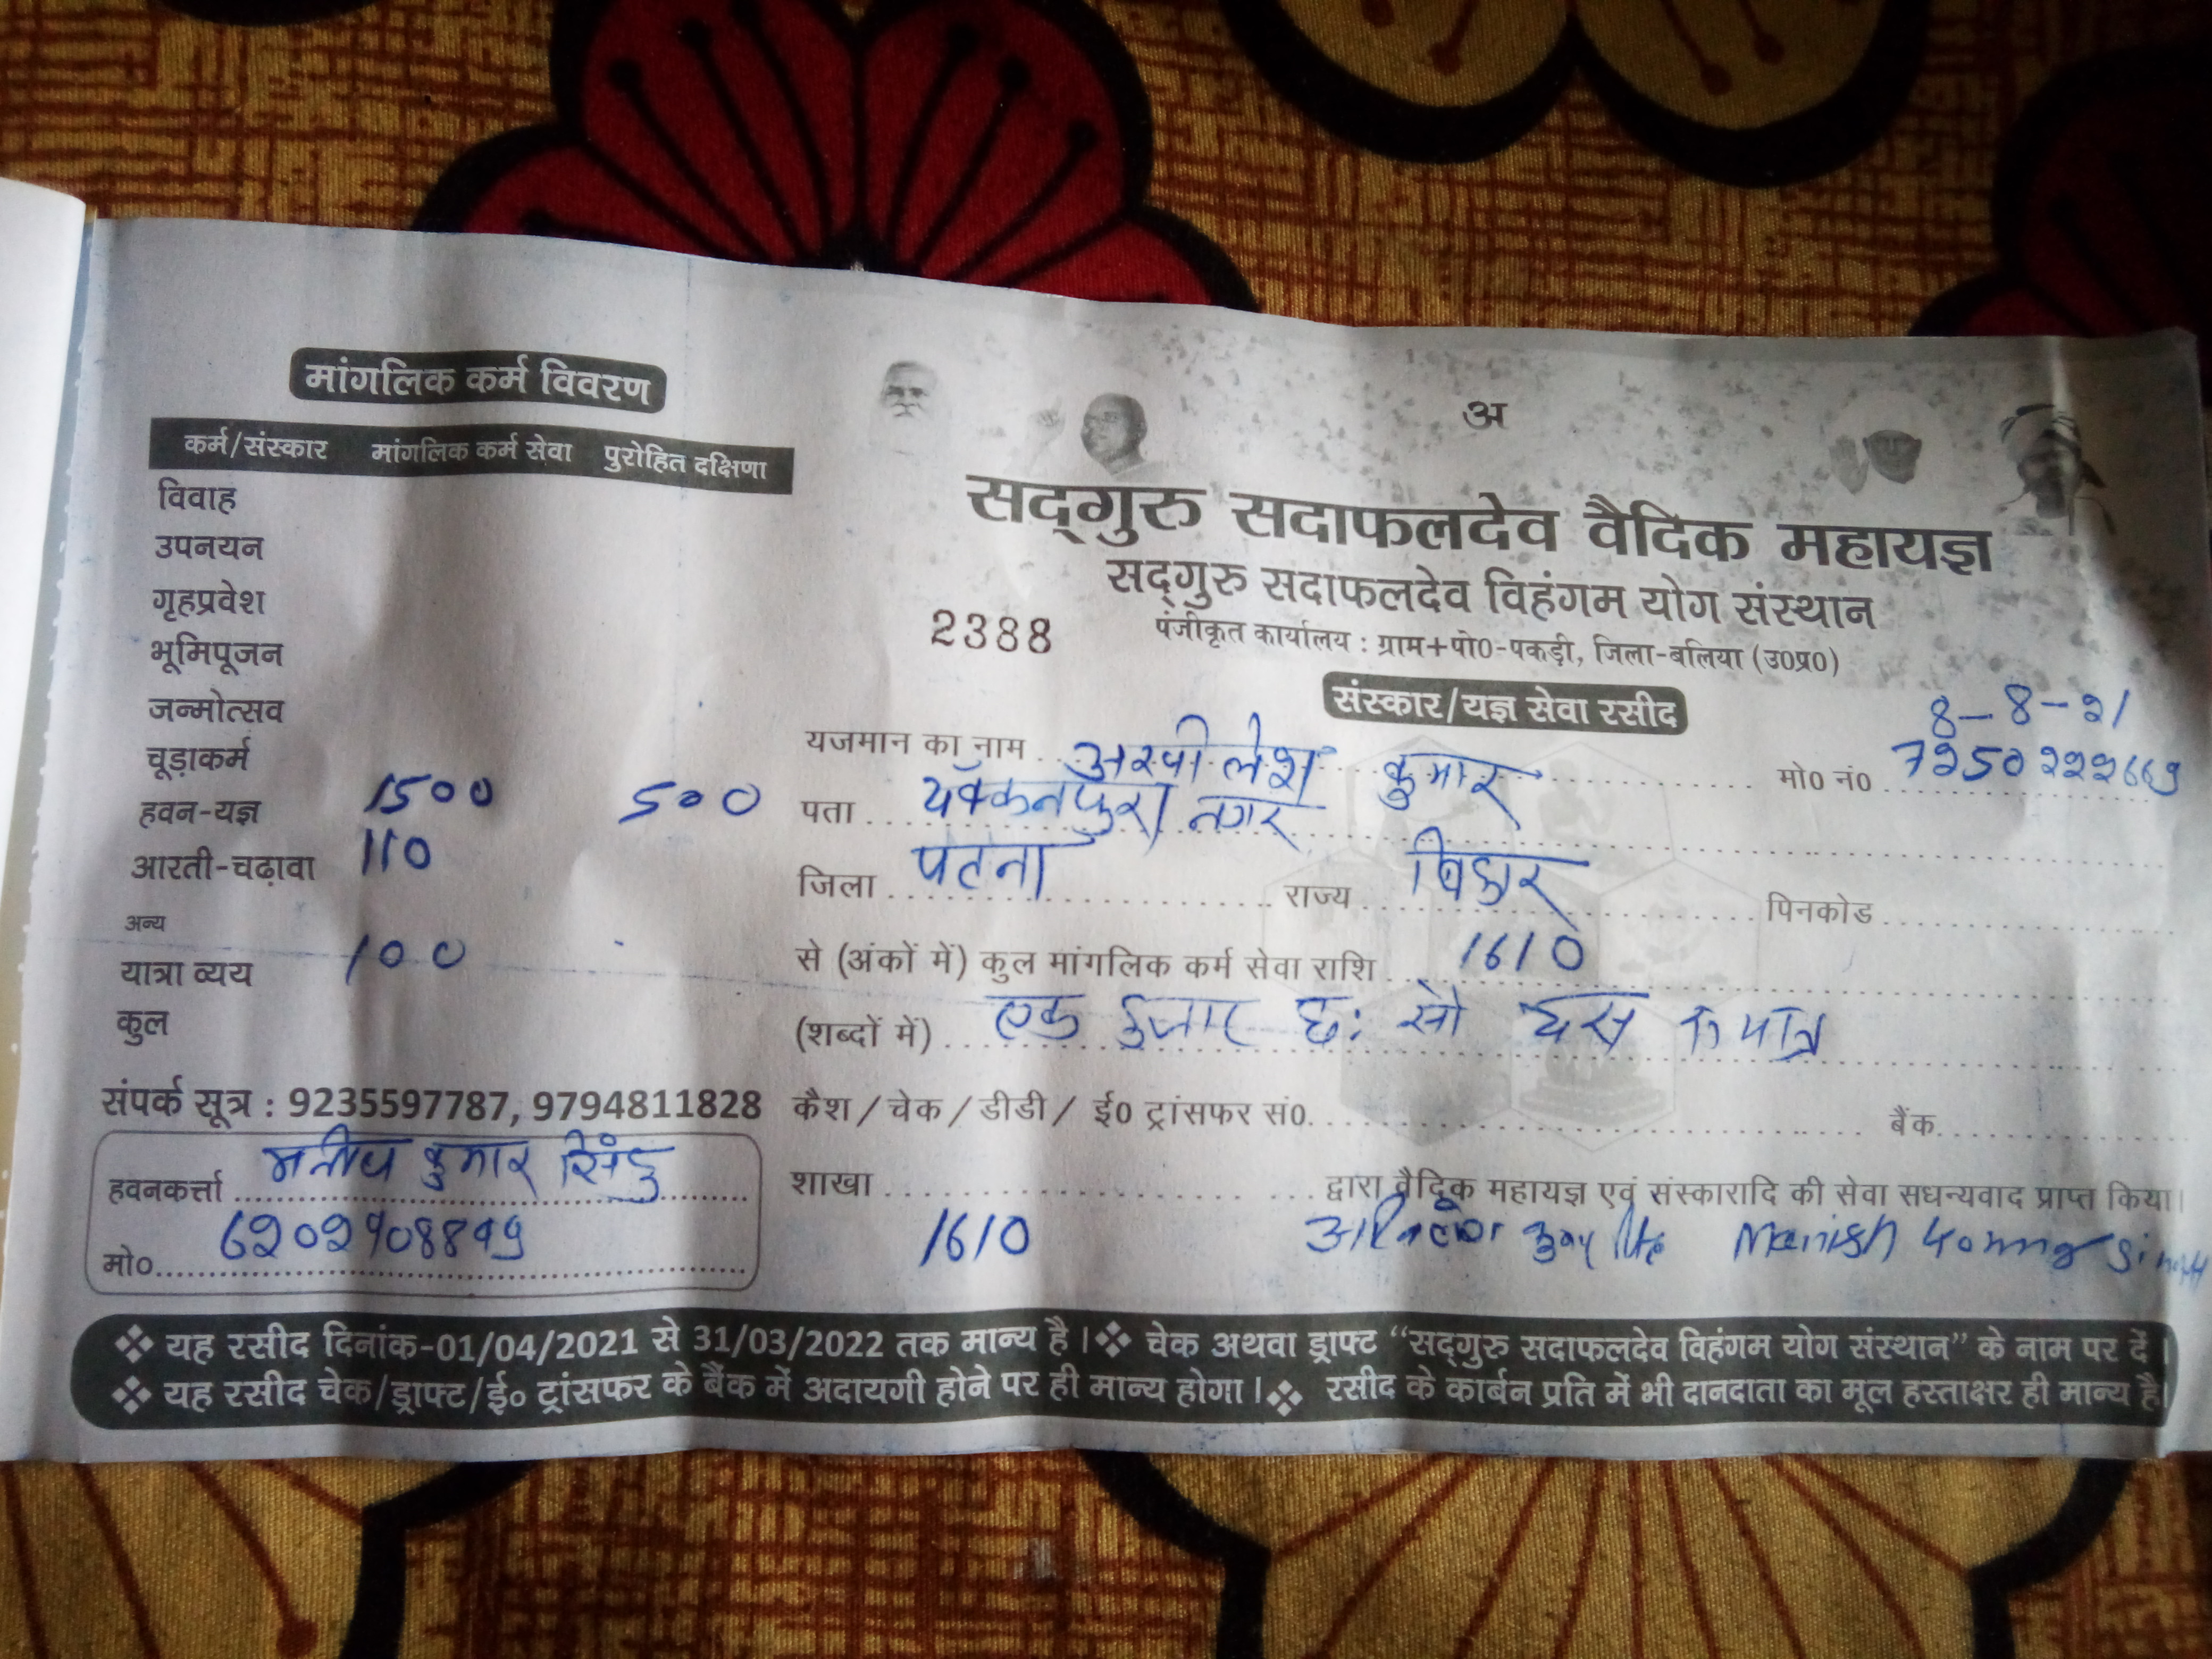 मांगलिक कर्म विवरण
कर्म/संस्कार मांगलिक कर्म सेवा पुरोहित दक्षिणा
विवाह
उपनयन
गृहप्रवेश
भूमिपूजन
जन्मोत्सव
चूड़ाकर्म
हवन-यज्ञ 1500 500
आरती-चढ़ावा 110
अन्य
यात्रा व्यय 100
कुल
संपर्क सूत्र : 9235597787, 9794811828
हवनकर्त्ता मनीष कुमार सिंह
मो०
अ
सद्गुरु सदाफलदेव वैदिक महायज्ञ
सद्गुरु सदाफलदेव विहंगम योग संस्थान
2388 पंजीकृत कार्यालय : ग्राम+पो0-पकड़ी, जिला-बलिया (उ0प्र0)
संस्कार/यज्ञ सेवा रसीद
8-8-21
यजमान का नाम अखीलेश कुमार मो0 नं0
पता नगर
जिला पटना राज्य बिहार पिनकोड
से (अंकों में) कुल मांगलिक कर्म सेवा राशि 1610
(शब्दों में) एक हजार छ: सौ दस रु मात्र
कैश / चेक / डीडी / ई0 ट्रांसफर सं0. बैंक
शाखा द्वारा वैदिक महायज्ञ एवं संस्कारादि की सेवा सधन्यवाद प्राप्त किया।
1610 Manish
❖ यह रसीद दिनांक-01/04/2021 से 31/03/2022 तक मान्य है। ❖ चेक अथवा ड्राफ्ट “सद्गुरु सदाफलदेव विहंगम योग संस्थान” के नाम पर दें।
❖ यह रसीद चेक/ड्राफ्ट/ई० ट्रांसफर के बैंक में अदायगी होने पर ही मान्य होगा। ❖ रसीद के कार्बन प्रति में भी दानदाता का मूल हस्ताक्षर ही मान्य है।